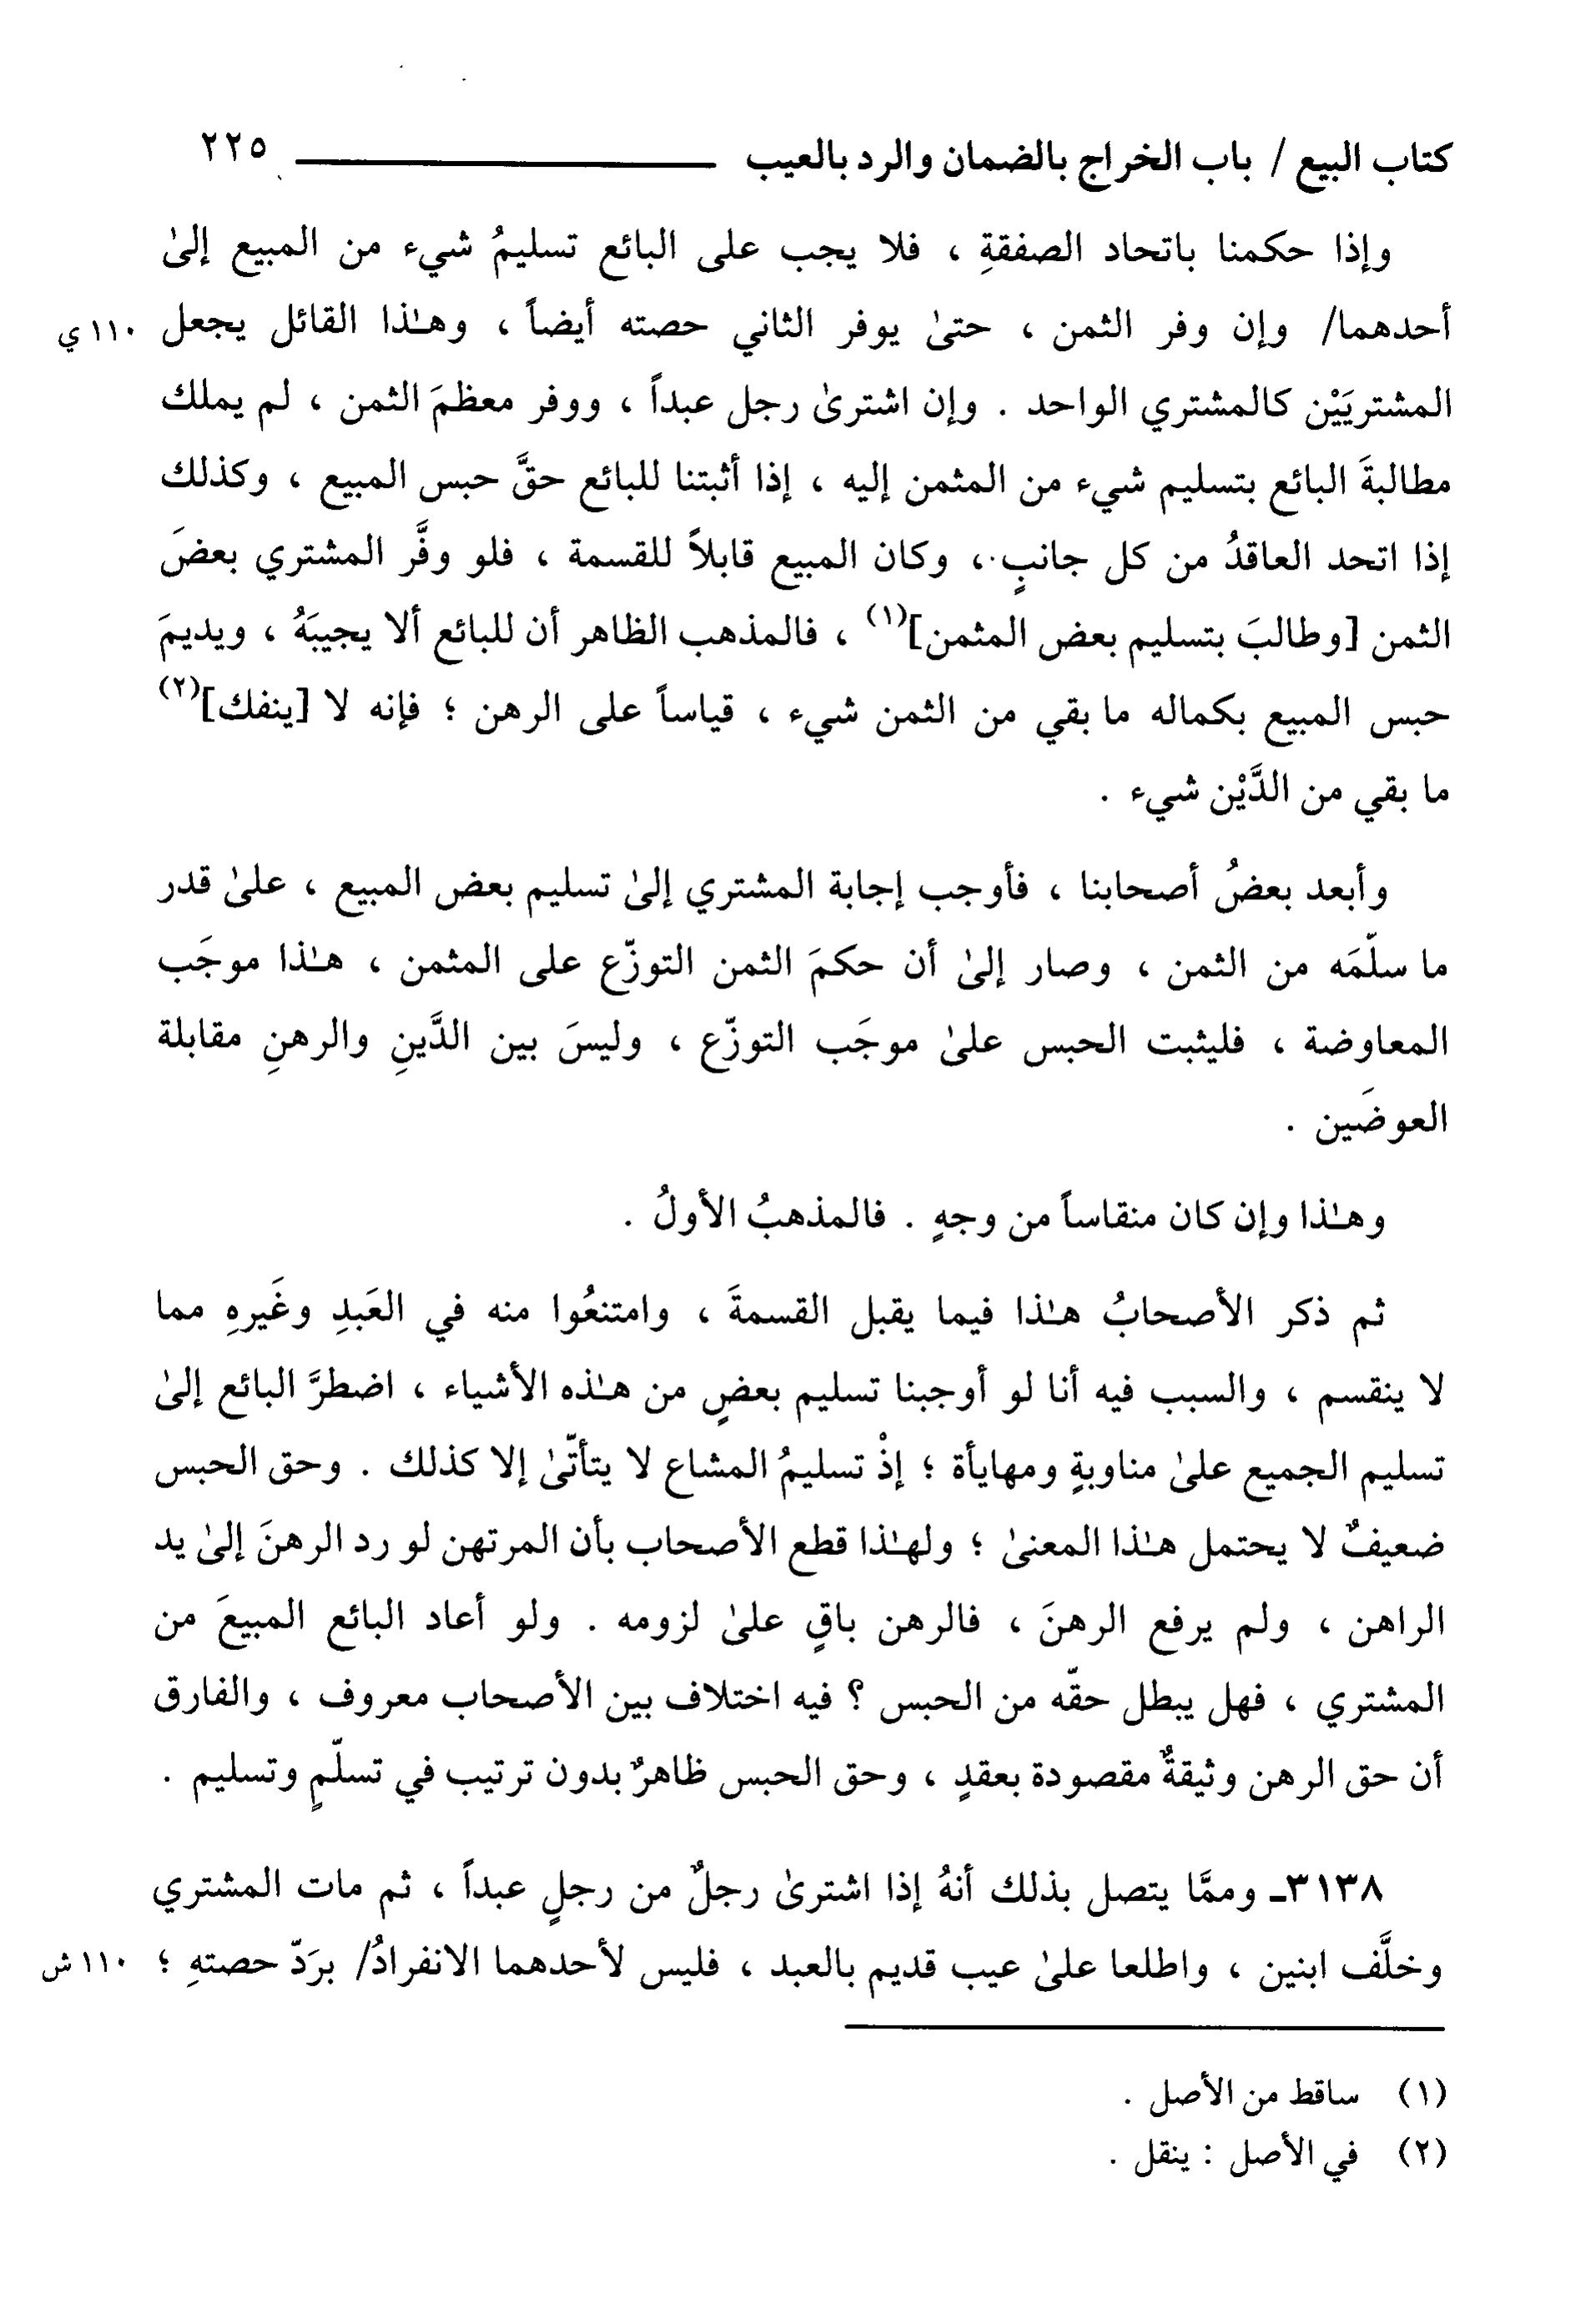 كتاب البيع / باب الخراج بالضمان والرد بالعيب ٢٢٥
وإذا حكمنا باتحاد الصفقةِ ، فلا يجب على البائع تسليمُ شيء من المبيع إلىٰ
أحدهما/ وإن وفر الثمن ، حتىٰ يوفر الثاني حصته أيضاً ، وهـٰذا القائل يجعل ١١٠ ي
المشتريَيْن كالمشتري الواحد . وإن اشترىٰ رجل عبداً ، ووفر معظمَ الثمن ، لم يملك
مطالبةَ البائع بتسليم شيء من المثمن إليه ، إذا أثبتنا للبائع حقَّ حبس المبيع ، وكذلك
إذا اتحد العاقدُ من كل جانبٍ ، وكان المبيع قابلاً للقسمة ، فلو وفَّر المشتري بعضَ
الثمن [وطالبَ بتسليم بعض المثمن](١) ، فالمذهب الظاهر أن للبائع ألا يجيبَهُ ، ويديمَ
حبس المبيع بكماله ما بقي من الثمن شيء ، قياساً على الرهن ؛ فإنه لا [ينفك](٢)
ما بقي من الدَّيْن شيء .
وأبعد بعضُ أصحابنا ، فأوجب إجابة المشتري إلىٰ تسليم بعض المبيع ، علىٰ قدر
ما سلّمَه من الثمن ، وصار إلىٰ أن حكمَ الثمن التوزّع على المثمن ، هـٰذا موجَب
المعاوضة ، فليثبت الحبس علىٰ موجَب التوزّع ، وليسَ بين الدَّينِ والرهنِ مقابلة
العوضَين .
وهـٰذا وإن كان منقاساً من وجهٍ . فالمذهبُ الأولُ .
ثم ذكر الأصحابُ هـٰذا فيما يقبل القسمةَ ، وامتنعُوا منه في العَبدِ وغَيرهِ مما
لا ينقسم ، والسبب فيه أنا لو أوجبنا تسليم بعضٍ من هـٰذه الأشياء ، اضطرَّ البائع إلىٰ
تسليم الجميع علىٰ مناوبةٍ ومهايأة ؛ إذْ تسليمُ المشاع لا يتأتّىٰ إلا كذلك . وحق الحبس
ضعيفٌ لا يحتمل هـٰذا المعنىٰ ؛ ولهـٰذا قطع الأصحاب بأن المرتهن لو رد الرهنَ إلىٰ يد
الراهن ، ولم يرفع الرهنَ ، فالرهن باقٍ علىٰ لزومه . ولو أعاد البائع المبيعَ من
المشتري ، فهل يبطل حقّه من الحبس ؟ فيه اختلاف بين الأصحاب معروف ، والفارق
أن حق الرهن وثيقةٌ مقصودة بعقدٍ ، وحق الحبس ظاهرٌ بدون ترتيب في تسلّمٍ وتسليم .
٣١٣٨ـ وممَّا يتصل بذلك أنهُ إذا اشترىٰ رجلٌ من رجلٍ عبداً ، ثم مات المشتري
وخلَّف ابنين ، واطلعا علىٰ عيب قديم بالعبد ، فليس لأحدهما الانفرادُ/ برَدّ حصتهِ ؛ ١١٠ ش
(١) ساقط من الأصل .
(٢) في الأصل : ينقل .